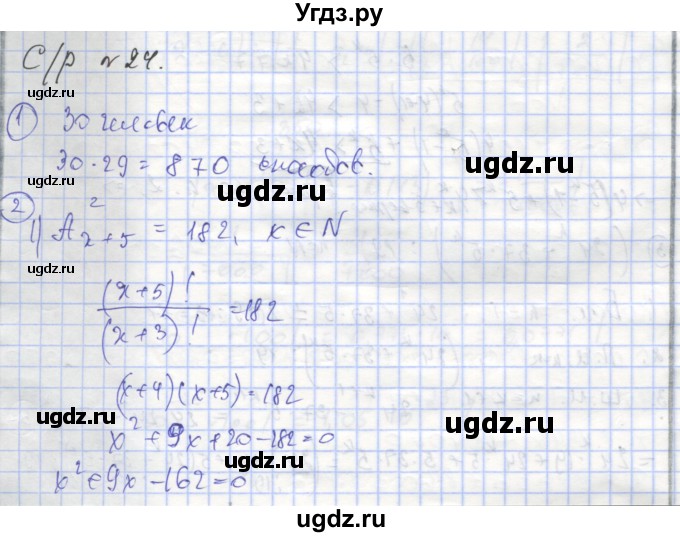 Угдз.ру
С/р №24.
ugdz.ru
ugdz.ru
ugdz.ru
① 30 человек
30·29 = 870 способов.
ugdz.ru
ugdz.ru
②
1) A²ₓ₊₅ = 182, x ∈ N
ugdz.ru
(x+5)! / (x+3)! = 182
ugdz.ru
ugdz.ru
(x+4)(x+5)=182
ugdz.ru
ugdz.ru
x² + 9x + 20 - 182 = 0
ugdz.ru
x² + 9x - 162 = 0
ugdz.ru
ugdz.ru